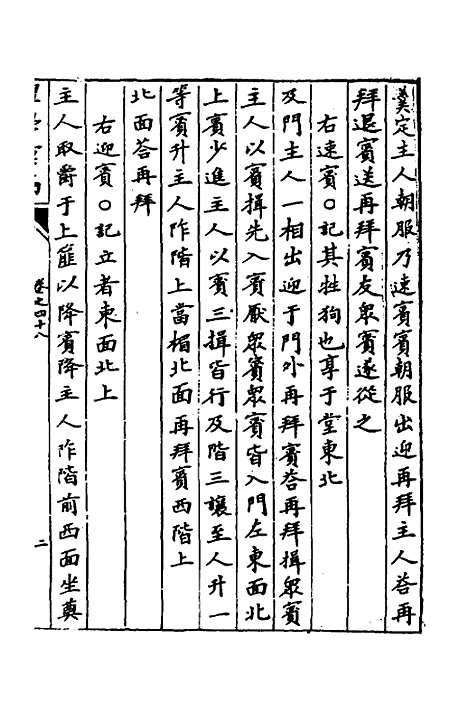 羹定主人朝服乃速賓賓朝服出迎再拜主人荅再
拜退賓送再拜賓友衆賓遂從之
右速賓○記其牲狗也享于堂東北
及門主人一相出迎于門外再拜賓荅再拜揖衆賓
主人以賓揖先入賓厭衆賓衆賓皆入門左東面北
上賓少進主人以賓三揖皆行及階三讓至人升一
等賓升主人阼階上當楣北面再拜賓西階上
北面荅再拜
右迎賓○記立者東面北上
主人取爵于上篚以降賓降主人阼階前西面坐奠
卷之四十八
二